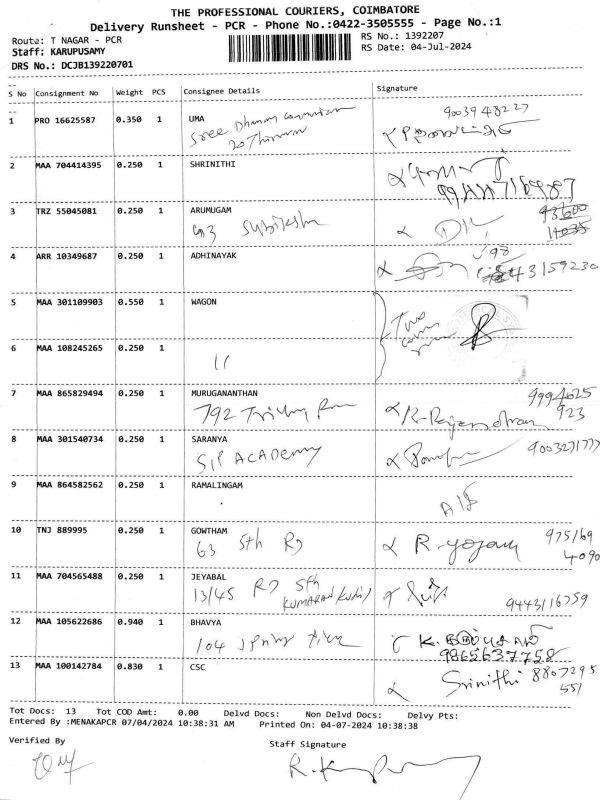 THE PROFESSIONAL COURIERS, COIMBATORE
Delivery Runsheet - PCR - Phone No.:0422-3505555 - Page No.:1
Route: T NAGAR - PCR
RS No.: 1392207
Staff: KARUPUSAMY
RS Date: 04-Jul-2024
DRS No.: DCJB139220701
S No Consignment No Weight PCS Consignee Details Signature
1 PRO 16625587 0.350 1 UMA 9003948227
Sree
2 MAA 704414395 0.250 1 SHRINITHI
3 TRZ 55045081 0.250 1 ARUMUGAM
Subiksha
4 ARR 10349687 0.250 1 ADHINAYAK
43159230
5 MAA 301109903 0.550 1 WAGON
6 MAA 108245265 0.250 1
11
7 MAA 865829494 0.250 1 MURUGANANTHAN 9994625
792 923
8 MAA 301540734 0.250 1 SARANYA
SIP ACADEMY
9 MAA 864582562 0.250 1 RAMALINGAM
10 TNJ 889995 0.250 1 GOWTHAM 975169
63 5th RD 4090
11 MAA 704565488 0.250 1 JEYABAL
13/45 RD 5th
9443116759
12 MAA 105622686 0.940 1 BHAVYA
104
9865637758
13 MAA 100142784 0.830 1 CSC
Srinithi 8807295
551
Tot Docs: 13 Tot COD Amt: 0.00 Delvd Docs: Non Delvd Docs: Delvy Pts:
Entered By :MENAKAPCR 07/04/2024 10:38:31 AM Printed On: 04-07-2024 10:38:38
Verified By
Staff Signature